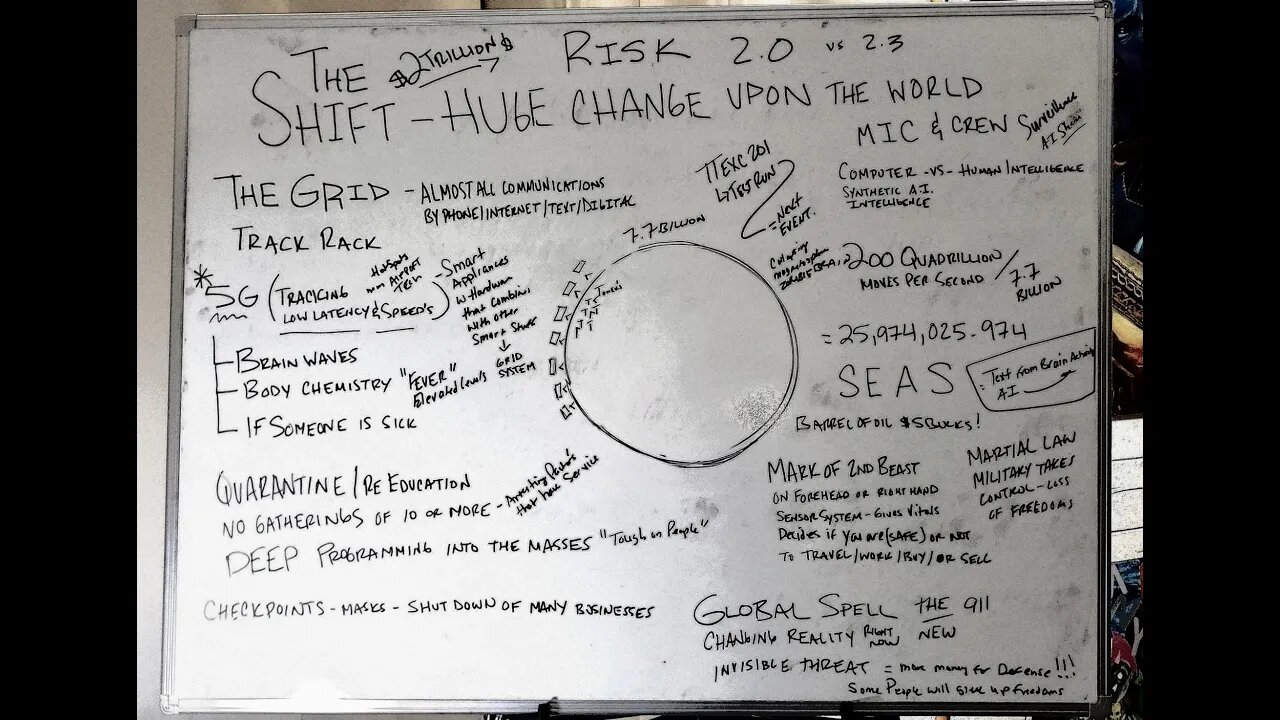 THE $2 TRILLION$ RISK 2.0 vs 2.3
SHIFT - HUGE CHANGE UPON THE WORLD
MIC & CREW
THE GRID - ALMOST ALL COMMUNICATIONS
BY PHONE/INTERNET/TEXT/DIGITAL
TRACK RACK
* 5G (TRACKING
LOW LATENCY & SPEED'S)
HotSpots
AIRPORT
TECH
- Smart
Appliances
w Hardware
that combines
with other
Smart Stuff
↓
GRID
SYSTEM
BRAIN WAVES
BODY CHEMISTRY "FEVER"
Elevated Levels
IF SOMEONE IS SICK
QUARANTINE/RE EDUCATION
NO GATHERINGS OF 10 OR MORE - Arresting
that have Service
DEEP PROGRAMMING INTO THE MASSES "Tough on People"
CHECKPOINTS - MASKS - SHUT DOWN OF MANY BUSINESSES
7.7 BILLION
201
TEST RUN
= Next
EVENT.
A.I.
COMPUTER -VS- HUMAN/INTELLIGENCE
SYNTHETIC A.I.
INTELLIGENCE
200 QUADRILLION / 7.7
MOVES PER SECOND BILLION
= 25,974,025.974
SEAS
= Text from Brain Activity
AI
BARREL OF OIL $5 BUCKS!
MARK OF 2ND BEAST
ON FOREHEAD OR RIGHT HAND
SENSOR SYSTEM - Gives Vitals
Decides if you are (SAFE) OR NOT
TO TRAVEL/WORK/BUY/OR SELL
MARTIAL LAW
MILITARY TAKES
CONTROL - LOSS
OF FREEDOMS
GLOBAL SPELL THE 911
CHANGING REALITY RIGHT NOW NEW
INVISIBLE THREAT = more money for Defense!!!
Some People will give up freedoms